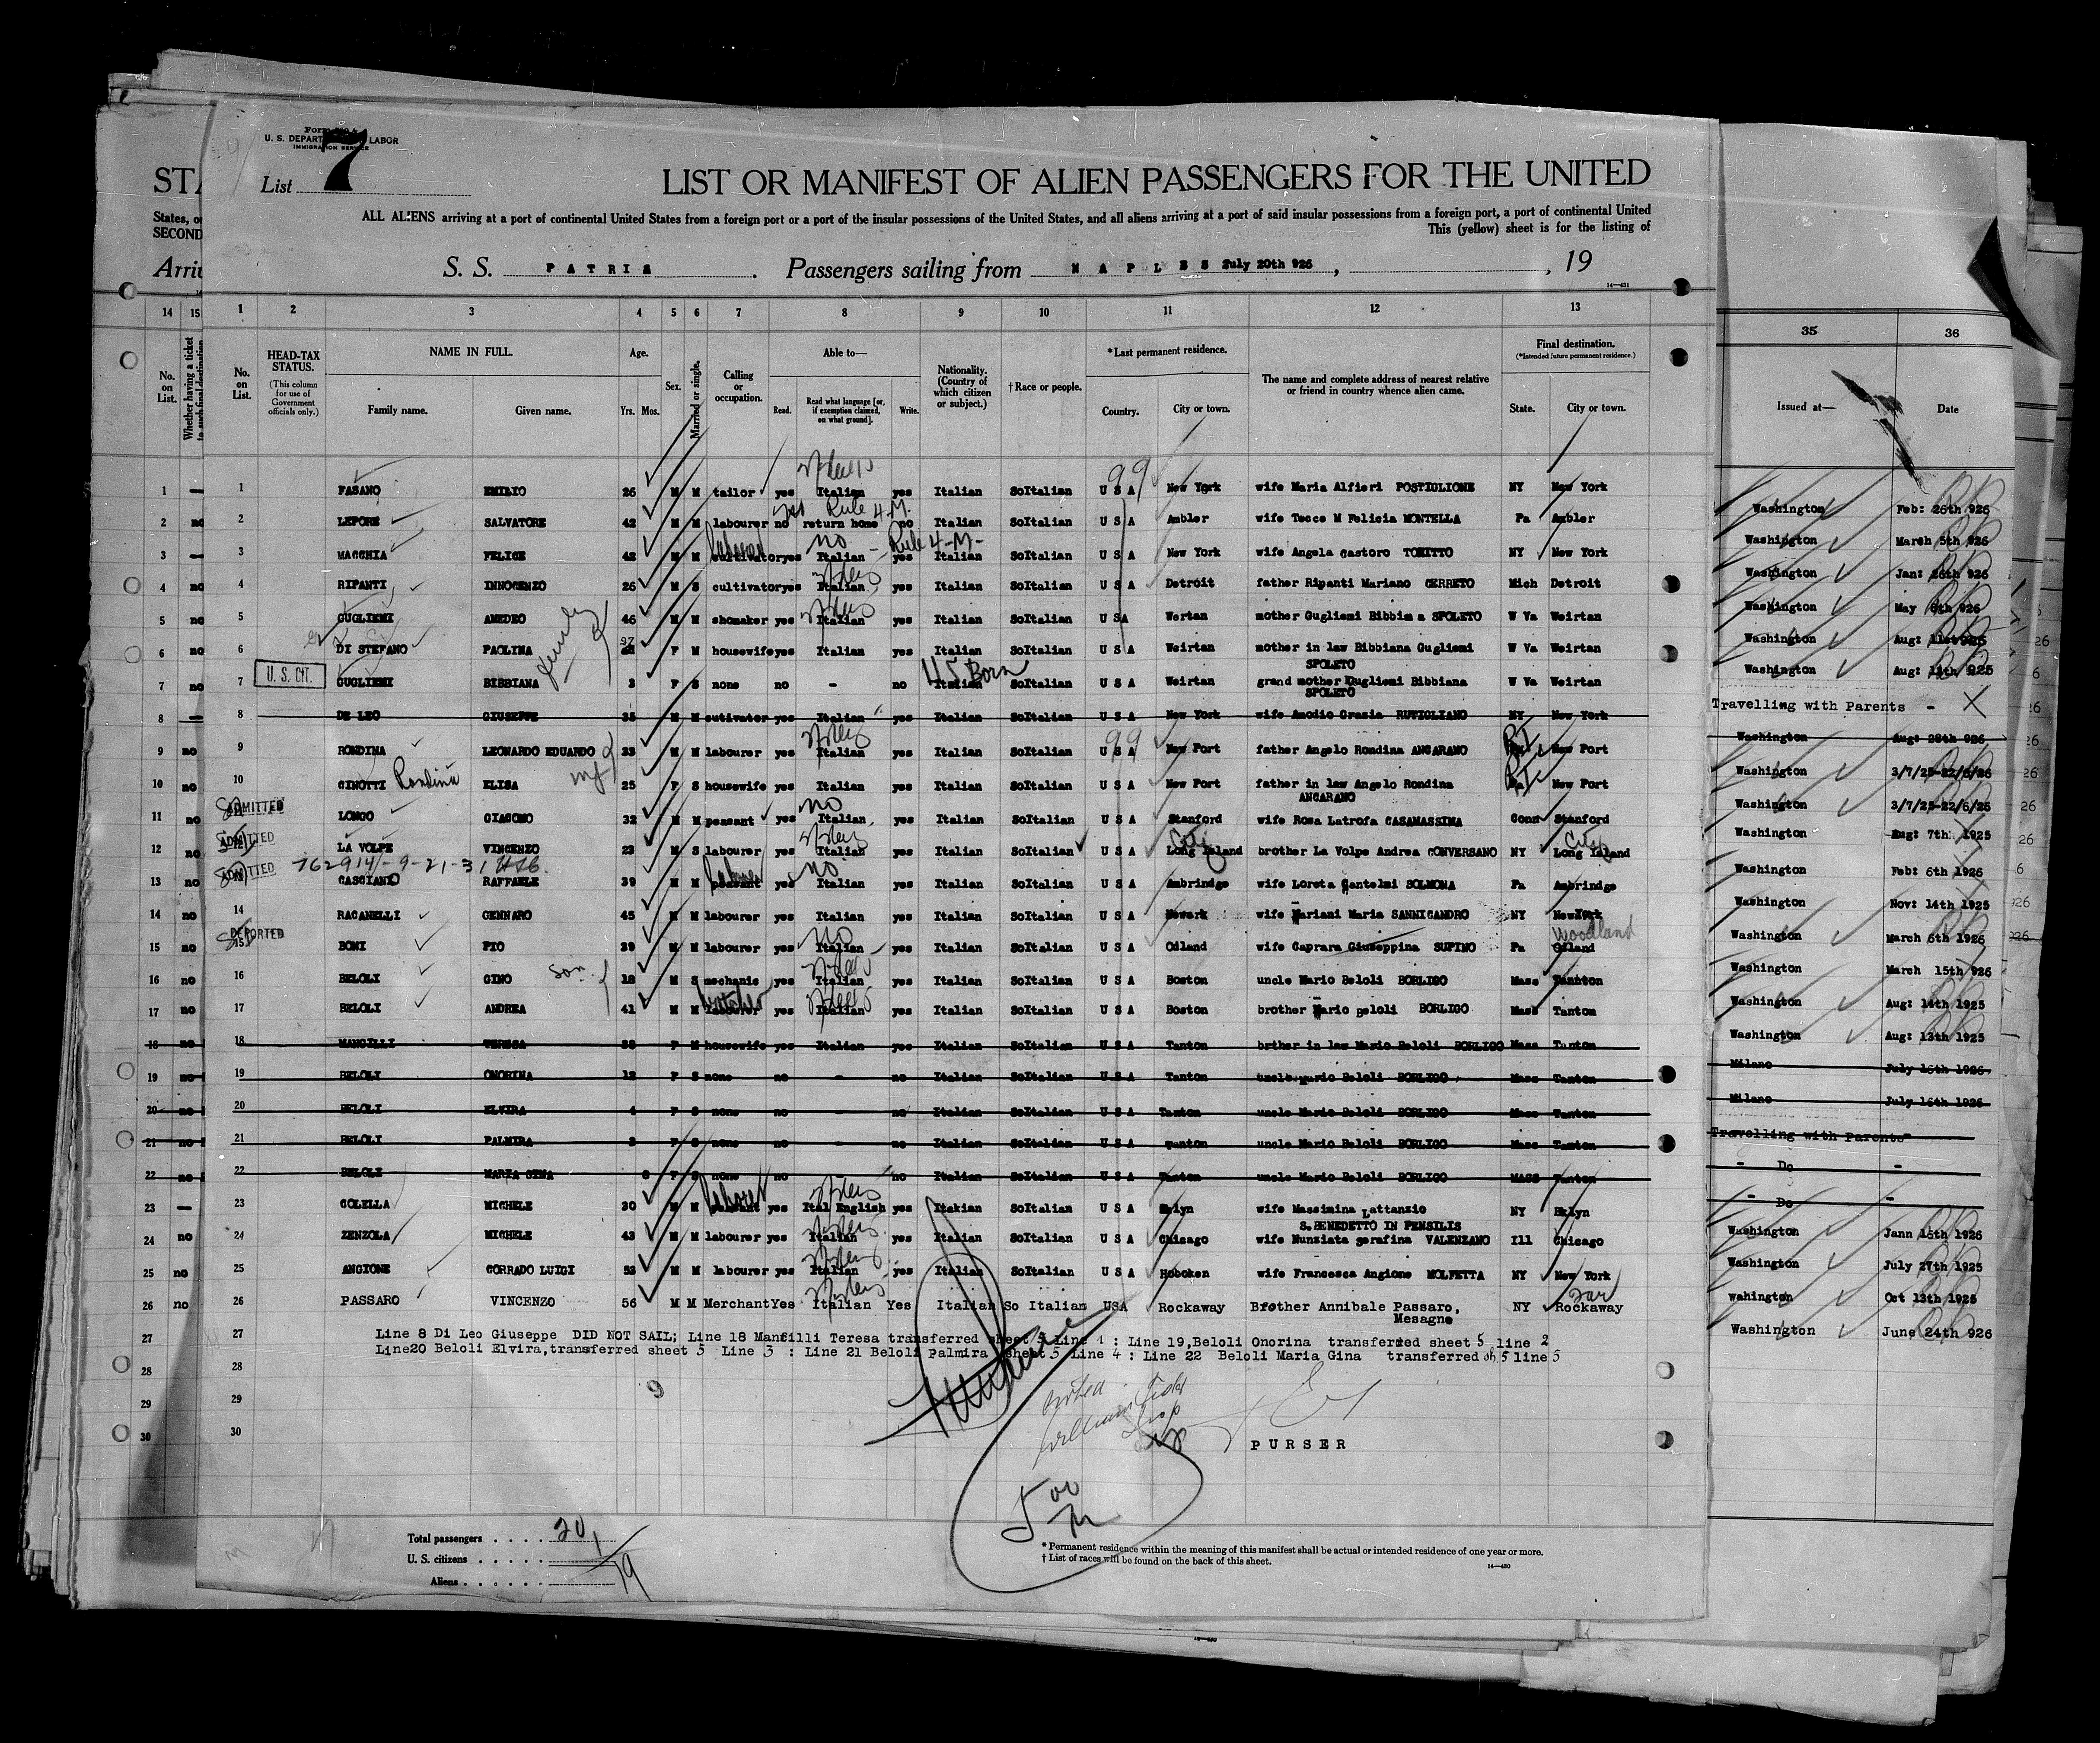 Form
U. S. DEPART LABOR
IMMIGRATION SERVICE
7
List
LIST OR MANIFEST OF ALIEN PASSENGERS FOR THE UNITED
STA
States, o
SECOND
ALL ALIENS arriving at a port of continental United States from a foreign port or a port of the insular possessions of the United States, and all aliens arriving at a port of said insular possessions from a foreign port, a port of continental United
This (yellow) sheet is for the listing of
Arriv
S. S. PATRIA. Passengers sailing from NAPLES July 20th 926, , 19
14—431
14 15 1 2 3 4 5 6 7 8 9 10 11 12 13 35 36
No. on List. Whether having a ticket to such final destination
No. on List. HEAD-TAX STATUS. (This column for use of Government officials only.) NAME IN FULL. Family name. Given name. Age. Yrs. Mos. Sex. Married or single. Calling or occupation. Able to— Read. Read what language [or, if exemption claimed, on what ground]. Write. Nationality. (Country of which citizen or subject.) † Race or people. *Last permanent residence. Country. City or town. The name and complete address of nearest relative or friend in country whence alien came. Final destination. (*Intended future permanent residence.) State. City or town. Issued at— Date
1 — 1 FASANO EMILIO 26 M M tailor yes Italian yes Italian SoItalian U S A New York wife Maria Alfieri POSTIGLIONE NY New York
99
yes Rule 4-M.
2 no 2 LEPORE SALVATORE 42 M M labourer no return home no Italian SoItalian U S A Ambler wife Tecce M Felicia MONTELLA Pa Ambler
no - Rule 4-M-
3 — 3 MACCHIA FELICE 42 M M cultivator yes Italian yes Italian SoItalian U S A New York wife Angela Castoro TORITTO NY New York
4 no 4 RIPANTI INNOCENZO 26 M S cultivator yes Italian yes Italian SoItalian U S A Detroit father Ripanti Mariano CERRETO Mich Detroit
5 no 5 GUGLIEMI AMEDEO 46 M M shomaker yes Italian yes Italian SoItalian U SA Wertan mother Gugliemi Bibbima SPOLETO W Va Weirtan
family
6 no 6 DI STEFANO PAOLINA 27 F M housewife yes Italian yes Italian SoItalian U S A Weirtan mother in law Bibbiana Gugliemi SPOLETO W Va Weirtan
U. S. CIT.
US Born
7 no 7 GUGLIEMI BIBBIANA 3 F S none no - no Italian SoItalian U S A Weirtan grand mother Gugliemi Bibbiana SPOLETO W Va Weirtan
8 — 8 DE LEO GIUSEPPE 35 M M cutivator yes Italian yes Italian SoItalian U S A New York wife Amodio Grazia RUTIGLIANO NY New York
9 no 9 RONDINA LEONARDO EDUARDO 33 M M labourer yes Italian yes Italian SoItalian U S A New Port father Angelo Rondina ANCARANO RI New Port
99
10 no 10 GINOTTI Rondina ELISA 25 F S housewife yes Italian yes Italian SoItalian U S A New Port father in law Angelo Rondina ANCARANO RI New Port
ADMITTED
11 no 11 LONGO GIACOMO 32 M M peasant yes no Italian yes Italian SoItalian U S A Stanford wife Rosa Latrofa CASAMASSIMA Conn Stanford
ADMITTED
12 no 12 LA VOLPE VINCENZO 23 M S labourer yes Italian yes Italian SoItalian U S A Long Island City brother La Volpe Andrea CONVERSANO NY Long Island City
ADMITTED
13 no CASCIANO RAFFAELE 39 M M peasant yes no Italian yes Italian SoItalian U S A Ambrindge wife Loreta Cantelmi SOLMONA Pa Ambrindge
14 no 14 RACANELLI GENNARO 45 M M labourer yes Italian yes Italian SoItalian U S A Newark wife Mariani Maria SANNICANDRO NY NewYork
DEPORTED
15 no 15 BONI PIO 39 M M labourer yes no Italian yes Italian SoItalian U S A Oiland wife Caprara Giuseppina SUPINO Pa Oiland Woodland
16 no 16 BELOLI GINO son 18 M S mechanic yes Italian yes Italian SoItalian U S A Boston uncle Mario Beloli BORLIGO Mass Tannton
17 no 17 BELOLI ANDREA 41 M M labourer butcher yes Italian yes Italian SoItalian U S A Boston brother Mario Beloli BORLIGO Mass Tanton
18 no 18 MANCILLI TERESA 38 F M housewife yes Italian yes Italian SoItalian U S A Tanton brther in law Mario Beloli BORLIGO Mass Tanton
19 no 19 BELOLI ONORINA 12 F S none no - no Italian SoItalian U S A Tanton uncle Mario Beloli BORLIGO Mass Tanton
20 no 20 BELOLI ELVIRA 4 F S none no - no Italian SoItalian U S A Tanton uncle Mario Beloli BORLIGO Mass Tanton
21 no 21 BELOLI PALMIRA 3 F S none no - no Italian SoItalian U S A Tanton uncle Mario Beloli BORLIGO Mass Tanton
22 no 22 BELOLI MARIA GINA 8 F S none no no Italian SoItalian U S A Tanton uncle Mario Beloli BORLIGO MASS Tanton
23 — 23 COLELLA MICHELE 30 M M laborer yes Ital English yes Itakian SoItalian U S A Bklyn wife Massimina Lattanzio S.BENEDETTO IN PENSILIS NY Bklyn
24 no 24 ZENZOLA MICHELE 43 M M labourer yes Italian yes Italian SoItalian U S A Chicago wife Nunziata Serafina VALENZANO Ill Chicago
25 no 25 ANGIONE CORRADO LUIGI 53 M M labourer yes Italian yes Italian SoItalian U S A Hoboken wife Francesca Angione MOLFETTA NY New York
26 no 26 PASSARO VINCENZO 56 M M Merchant Yes Italian Yes Italian So Italian USA Rockaway Brother Annibale Passaro, Mesagne NY Rockaway Far
27 27 Line 8 Di Leo Giuseppe DID NOT SAIL; Line 18 Mancilli Teresa transferred sheet 5 Line 1 : Line 19,Beloli Onorina transferred sheet 5 line 2
Line20 Beloli Elvira,transferred sheet 5 Line 3 : Line 21 Beloli Palmira sheet 5 Line 4 : Line 22 Beloli Maria Gina transferred sh 5 line 5
28 28
29 29
30 30
9
PURSER
Total passengers . . . . 20
U. S. citizens . . . . . 1
Aliens . . . . . . 19
* Permanent residence within the meaning of this manifest shall be actual or intended residence of one year or more.
† List of races will be found on the back of this sheet.
14—430
Washington Feb: 26th 926
Washington March 5th 926
Washington Jan: 26th 926
Washington May 6th 926
Washington Aug: 11st 925
Washington Aug: 11th 925
Travelling with Parents - X
Washington Aug: 28th 926
Washington 3/7/25-22/6/26
Washington 3/7/25-22/6/26
Washington Aug: 7th 1925
Washington Feb: 6th 1926
Washington Nov: 14th 1925
Washington March 6th 1926
Washington March 15th 926
Washington Aug: 14th 1925
Washington Aug: 13th 1925
Milano July 16th 1926
Milano July 16th 1926
Travelling with Parents"
- Do -
- Do -
Washington Jann 15th 1926
Washington July 27th 1925
wahington Oct 13th 1925
Washington June 24th 926